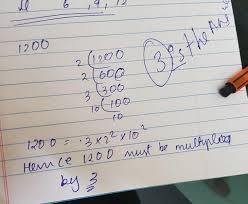 6, 9, 12
1200
2 | 1200
2 | 600
3 | 300
10 | 100
10
3 is the An
1200 = 3×2²×10²
Hence 1200 must be multiplied
by 3